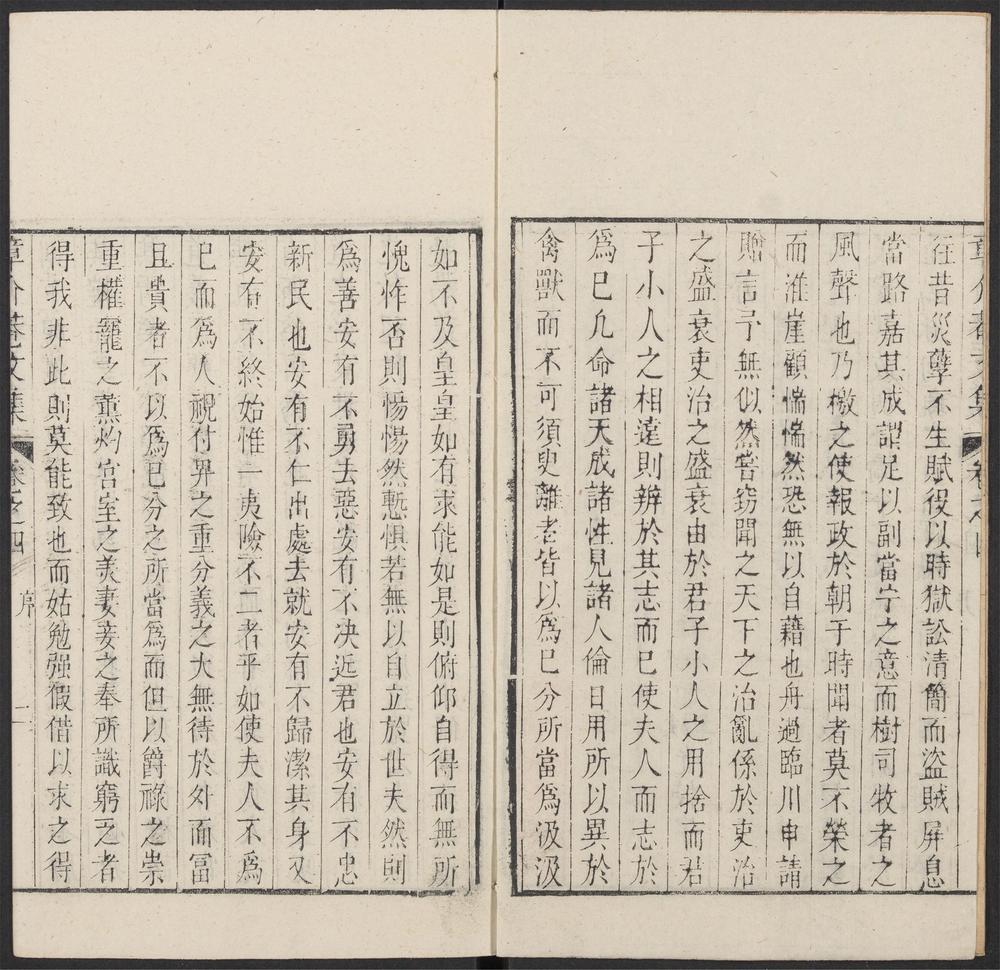 章介菴文集 卷之四
徃昔災孽不生賦役以時獄訟清簡而盜賊屏息
當路嘉其成謂足以副當宁之意而樹司牧者之
風聲也乃檄之使報政於朝于時聞者莫不榮之
而淮崖顧惴惴然恐無以自藉也舟過臨川申請
贈言予無似然嘗窃聞之天下之治亂係於吏治
之盛衰吏治之盛衰由於君子小人之用捨而君
子小人之相遠則辨於其志而已使夫人而志於
為已凢命諸天成諸性見諸人倫日用所以異於
禽獸而不可須臾離者皆以為已分所當為汲汲
如不及皇皇如有求能如是則俯仰自得而無所
愧怍否則惕惕然慙惧若無以自立於世夫然則
為善安有不勇去惡安有不决近君也安有不忠
新民也安有不仁出處去就安有不歸潔其身又
安有不終始惟一夷險不二者乎如使夫人不為
已而為人視付畀之重分義之大無待於外而冨
且貴者不以為已分之所當為而但以爵祿之崇
重權寵之薰灼宫室之美妻妾之奉所識窮乏者
得我非此則莫能致也而姑勉强假借以求之得
章介菴文集 卷之四 序 二